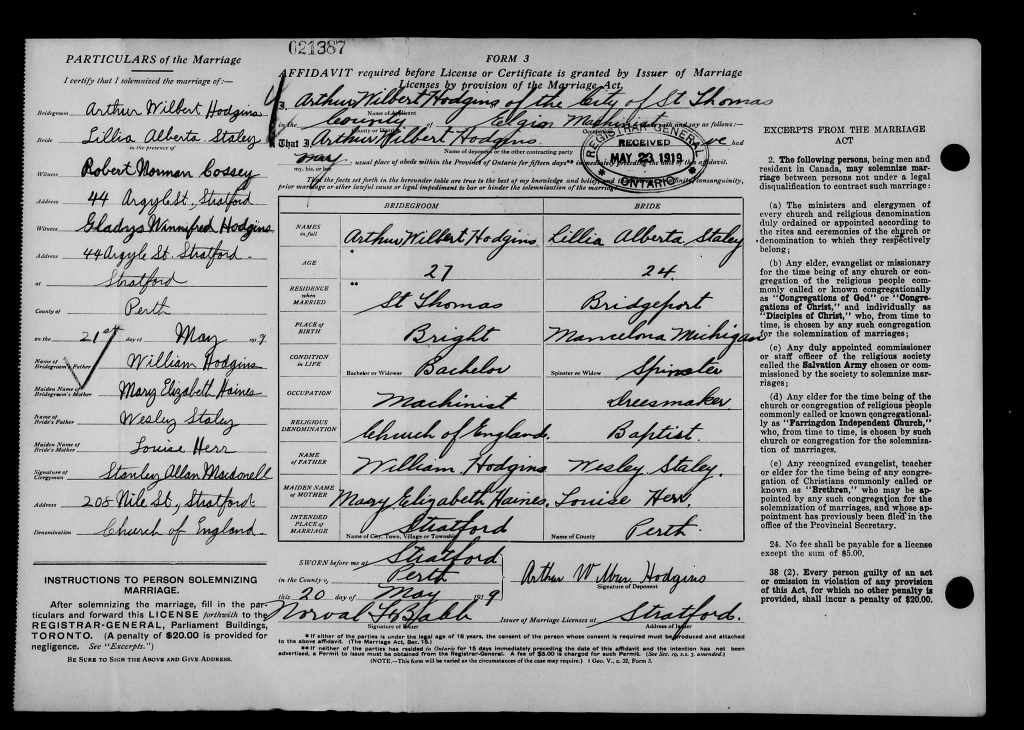 021387
PARTICULARS of the Marriage
I certify that I solemnized the marriage of:—
Bridegroom Arthur Wilbert Hodgins
Bride Lillia Alberta Staley
in the presence of
Witness Robert Norman Cossey
Address 44 Argyle St., Stratford
Witness Gladys Winnifred Hodgins
Address 44 Argyle St. Stratford.
at Stratford
County of Perth
on the 21st day of May 1919
Name of Bridegroom's Father William Hodgins
Maiden Name of Bridegroom's Mother Mary Elizabeth Haines
Name of Bride's Father Wesley Staley
Maiden Name of Bride's Mother Louise Herr
Signature of Clergyman Stanley Allan Macdonell
Address 208 Nile St., Stratford
Denomination Church of England
INSTRUCTIONS TO PERSON SOLEMNIZING
MARRIAGE.
After solemnizing the marriage, fill in the par-
ticulars and forward this LICENSE forthwith to the
REGISTRAR-GENERAL, Parliament Buildings,
TORONTO. (A penalty of $20.00 is provided for
negligence. See "Excerpts.")
BE SURE TO SIGN THE ABOVE AND GIVE ADDRESS.
FORM 3
AFFIDAVIT required before License or Certificate is granted by Issuer of Marriage
Licenses by provision of the Marriage Act.
I, Arthur Wilbert Hodgins of the City of St Thomas
Name of Applicant
in the County of Elgin Machinist and say as follows:—
County or District
That I Arthur Wilbert Hodgins. have had
Name of deponent or the other contracting party
my usual place of abode within the Province of Ontario for fifteen days** immediately preceding the date of this affidavit.
my, his, or her
That the facts set forth in the hereunder table are true to the best of my knowledge and belief, and consanguinity,
prior marriage or other lawful cause or legal impediment to bar or hinder the solemnization of the marriage
REGISTRAR GENERAL
RECEIVED
MAY 23 1919
ONTARIO
BRIDEGROOM BRIDE
NAMES in full Arthur Wilbert Hodgins Lillia Alberta Staley
AGE 27 24.
RESIDENCE when MARRIED ** St Thomas Bridgeport
PLACE of BIRTH Bright Mancelona Michigan
CONDITION in LIFE Bachelor or Widower Bachelor Spinster or Widow Spinster
OCCUPATION Machinist Dressmaker.
RELIGIOUS DENOMINATION Church of England. Baptist.
NAME OF FATHER William Hodgins Wesley Staley.
MAIDEN NAME OF MOTHER Mary Elizabeth Haines. Louise Herr.
INTENDED PLACE OF MARRIAGE Stratford Perth.
Name of City, Town, Village or Township Name of County
SWORN before me at Stratford
in the County of Perth
this 20 day of May 1919
Arthur Wilbur Hodgins
Signature of Deponent
Norval Babb
Signature of Issuer
Issuer of Marriage Licenses at Stratford.
Address of Issuer
* If either of the parties is under the legal age of 18 years, the consent of the person whose consent is required must be produced and attached
to the above affidavit. (The Marriage Act, Sec. 15.)
** If neither of the parties has resided in Ontario for 15 days immediately preceding the date of this affidavit and the intention has not been
advertised, a Permit to issue must be obtained from the Registrar-General. A fee of $5.00 is charged for such Permit. (See Sec. 19, s.s. 3. amended.)
(NOTE.—This form will be varied as the circumstances of the case may require.) 1 Geo. V., c. 32, Form 3.
EXCERPTS FROM THE MARRIAGE
ACT
2. The following persons, being men and
resident in Canada, may solemnize mar-
riage between persons not under a legal
disqualification to contract such marriage:
(a) The ministers and clergymen of
every church and religious denomination
duly ordained or appointed according to
the rites and ceremonies of the church or
denomination to which they respectively
belong;
(b) Any elder, evangelist or missionary
for the time being of any church or con-
gregation of the religious people com-
monly called or known congregationally
as "Congregations of God" or "Congre-
gations of Christ," and individually as
"Disciples of Christ," who, from time to
time, is chosen by any such congregation
for the solemnization of marriages;
(c) Any duly appointed commissioner
or staff officer of the religious society
called the Salvation Army chosen or com-
missioned by the society to solemnize mar-
riages;
(d) Any elder for the time being of the
church or congregation of religious people
commonly called or known congregational-
ly as "Farringdon Independent Church,"
who, from time to time, is chosen by such
church or congregation for the solemniza-
tion of marriages,
(e) Any recognized evangelist, teacher
or elder for the time being of any congre-
gation of Christians commonly called or
known as "Brethren," who may be ap-
pointed by any such congregation for the
solemnization of marriages, and whose ap-
pointment has previously been filed in the
office of the Provincial Secretary.
24. No fee shall be payable for a license
except the sum of $5.00.
38 (2). Every person guilty of an act
or omission in violation of any provision
of this Act, for which no other penalty is
provided, shall incur a penalty of $20.00.